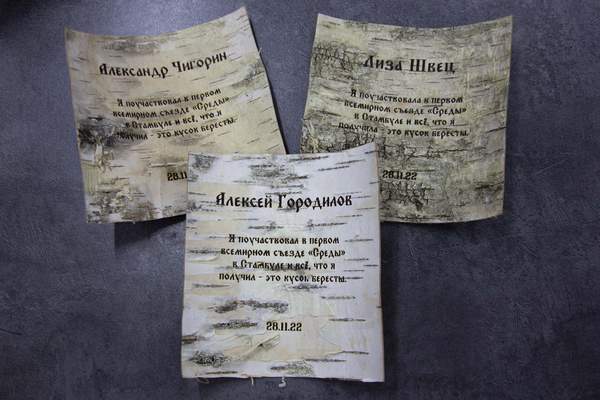 Александр Чигорин
Я поучаствовал в первом
всемирном съезде «Среды»
в Стамбуле и всё, что я
получил - это кусок бересты.
28.11
Лиза Швец
Я поучаствовала в первом
всемирном съезде «Среды»
в Стамбуле и всё, что я
получила - это кусок бересты.
28.11.22
Алексей Городилов
Я поучаствовал в первом
всемирном съезде «Среды»
в Стамбуле и всё, что я
получил - это кусок бересты.
28.11.22